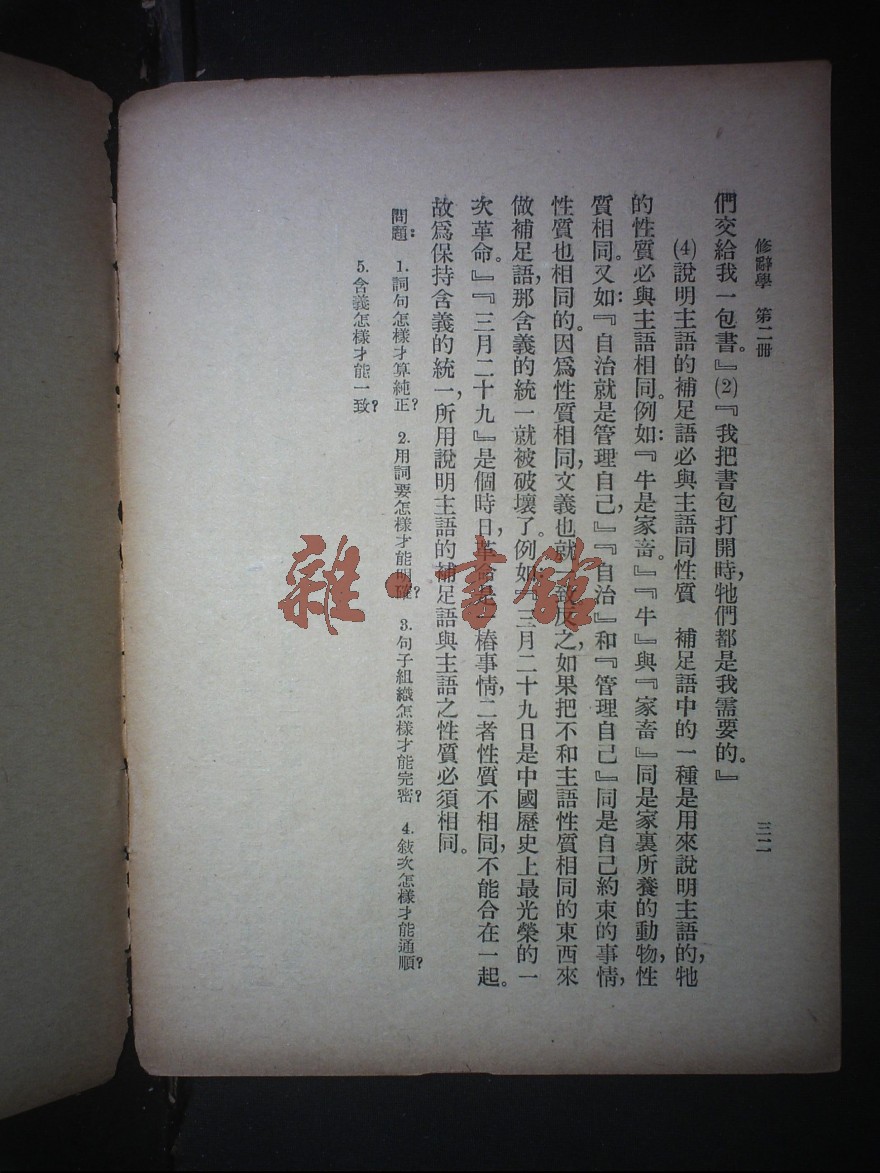 修辭學 第二冊 三二
們交給我一包書。』(2)『我把書包打開時,牠們都是我需要的。』
(4)說明主語的補足語必與主語同性質 補足語中的一種是用來說明主語的,牠
的性質必與主語相同。例如:『牛是家畜。』『牛』與『家畜』同是家裏所養的動物,性
質相同。又如:『自治就是管理自己,』『自治』和『管理自己』同是自己約束的事情,
性質也相同的。因爲性質相同,文義也就一致。反之,如果把不和主語性質相同的東西來
做補足語,那含義的統一就被破壞了。例如『三月二十九日是中國歷史上最光榮的一
次革命。』『三月二十九』是個時日,革命是一樁事情,二者性質不相同,不能合在一起。
故爲保持含義的統一,所用說明主語的補足語與主語之性質必須相同。
問題: 1. 詞句怎樣才算純正? 2. 用詞要怎樣才能明確? 3. 句子組織怎樣才能完密? 4. 敍次怎樣才能通順?
5. 含義怎樣才能一致?
雜·書館